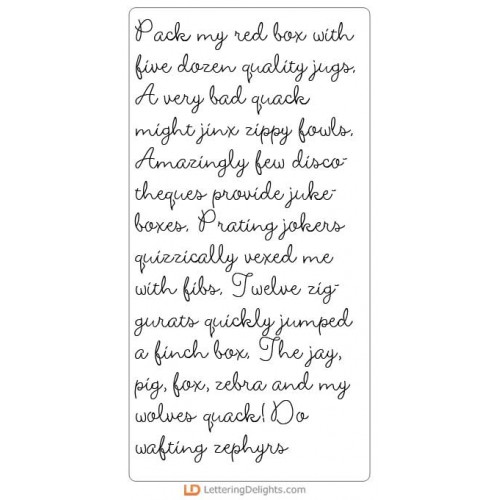 Pack my red box with
five dozen quality jugs.
A very bad quack
might jinx zippy fowls.
Amazingly few disco-
theques provide juke-
boxes. Prating jokers
quizzically vexed me
with fibs. Twelve zig-
gurats quickly jumped
a finch box. The jay,
pig, fox, zebra and my
wolves quack! Do
wafting zephyrs
LD LetteringDelights.com